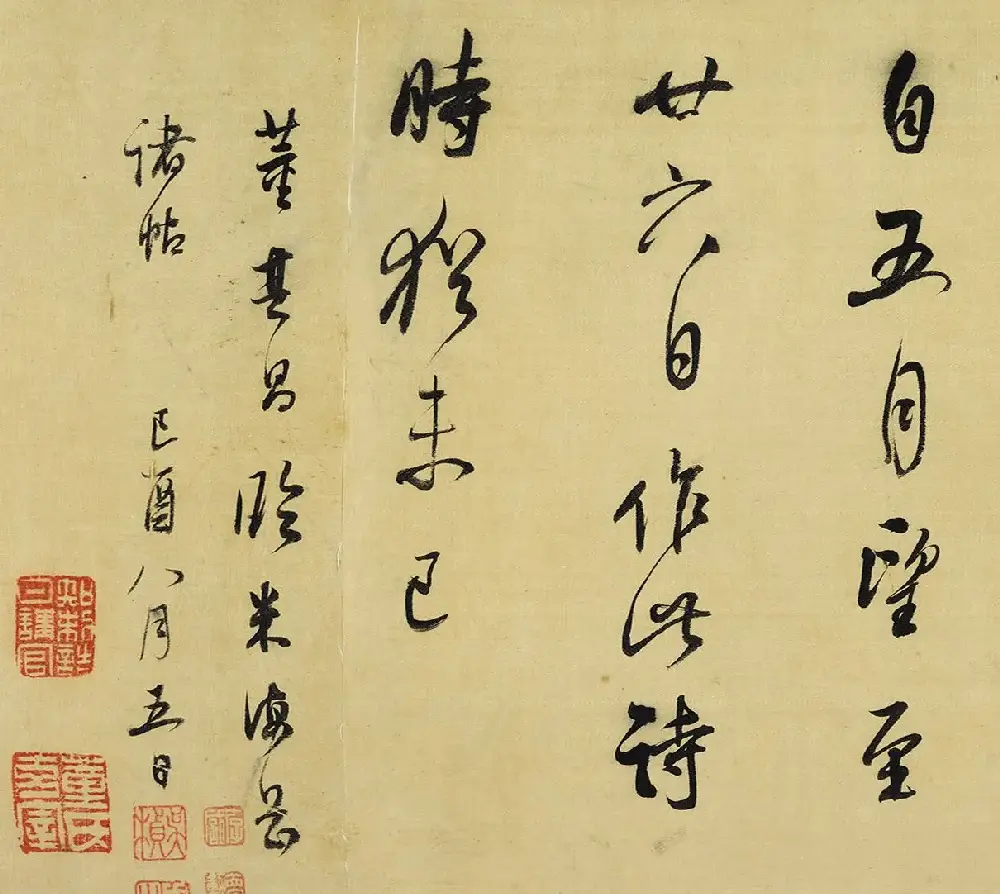 自五月望至
廿六日作此詩
時猶未已
董其昌臨米海岳
諸帖
己酉八月五日
董氏玄宰